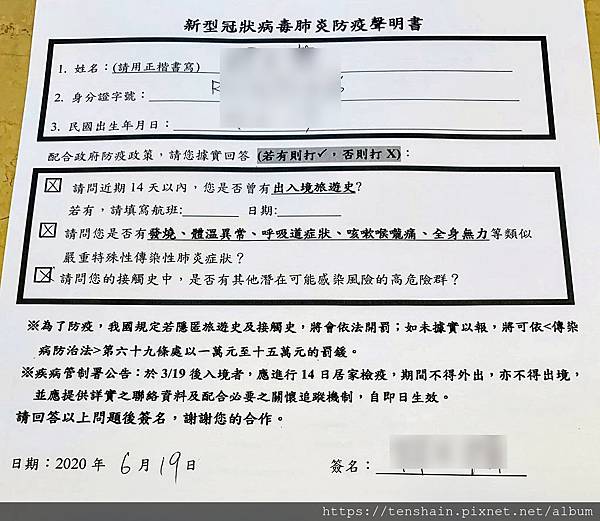 新型冠狀病毒肺炎防疫聲明書
1. 姓名：(請用正楷書寫)
2. 身分證字號：
3. 民國出生年月日：
配合政府防疫政策，請您據實回答 (若有則打✓，否則打 X)：
☒ 請問近期 14 天以內，您是否曾有出入境旅遊史?
若有，請填寫航班: 日期:
☒ 請問您是否有發燒、體溫異常、呼吸道症狀、咳嗽喉嚨痛、全身無力等類似
嚴重特殊性傳染性肺炎症狀？
☒ 請問您的接觸史中，是否有其他潛在可能感染風險的高危險群？
※為了防疫，我國規定若隱匿旅遊史及接觸史，將會依法開罰；如未據實以報，將可依<傳染
病防治法>第六十九條處以一萬元至十五萬元的罰鍰。
※疾病管制署公告：於 3/19 後入境者，應進行 14 日居家檢疫，期間不得外出，亦不得出境，
並應提供詳實之聯絡資料及配合必要之關懷追蹤機制，自即日生效。
請回答以上問題後簽名，謝謝您的合作。
日期：2020 年 6 月 19 日 簽名：
https://tenshain.pixnet.net/album